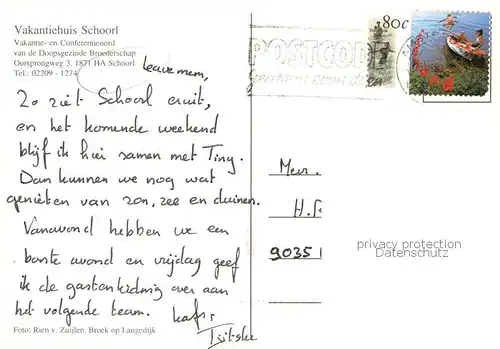 Vakantiehuis Schoorl
Vakantie- en Conferentieoord
van de Doopsgezinde Broederschap
Oorsprongweg 3. 1871 HA Schoorl
Tel.: 02209 - 1274
mem,
Zo ziet Schoorl eruit,
en het komende weekend
blijf ik hier samen met Tiny.
Dan kunnen we nog wat
genieten van zon, zee en duinen.
Vanavond hebben we een
bonte avond en vrijdag geef
ik de gastenleiding over aan
het volgende team.
liefs,
Tjitske
Foto: Rien v. Zuijlen, Broek op Langedijk
80c
POSTCODE
Mevr.
H.
9035
privacy protection
Datenschutz